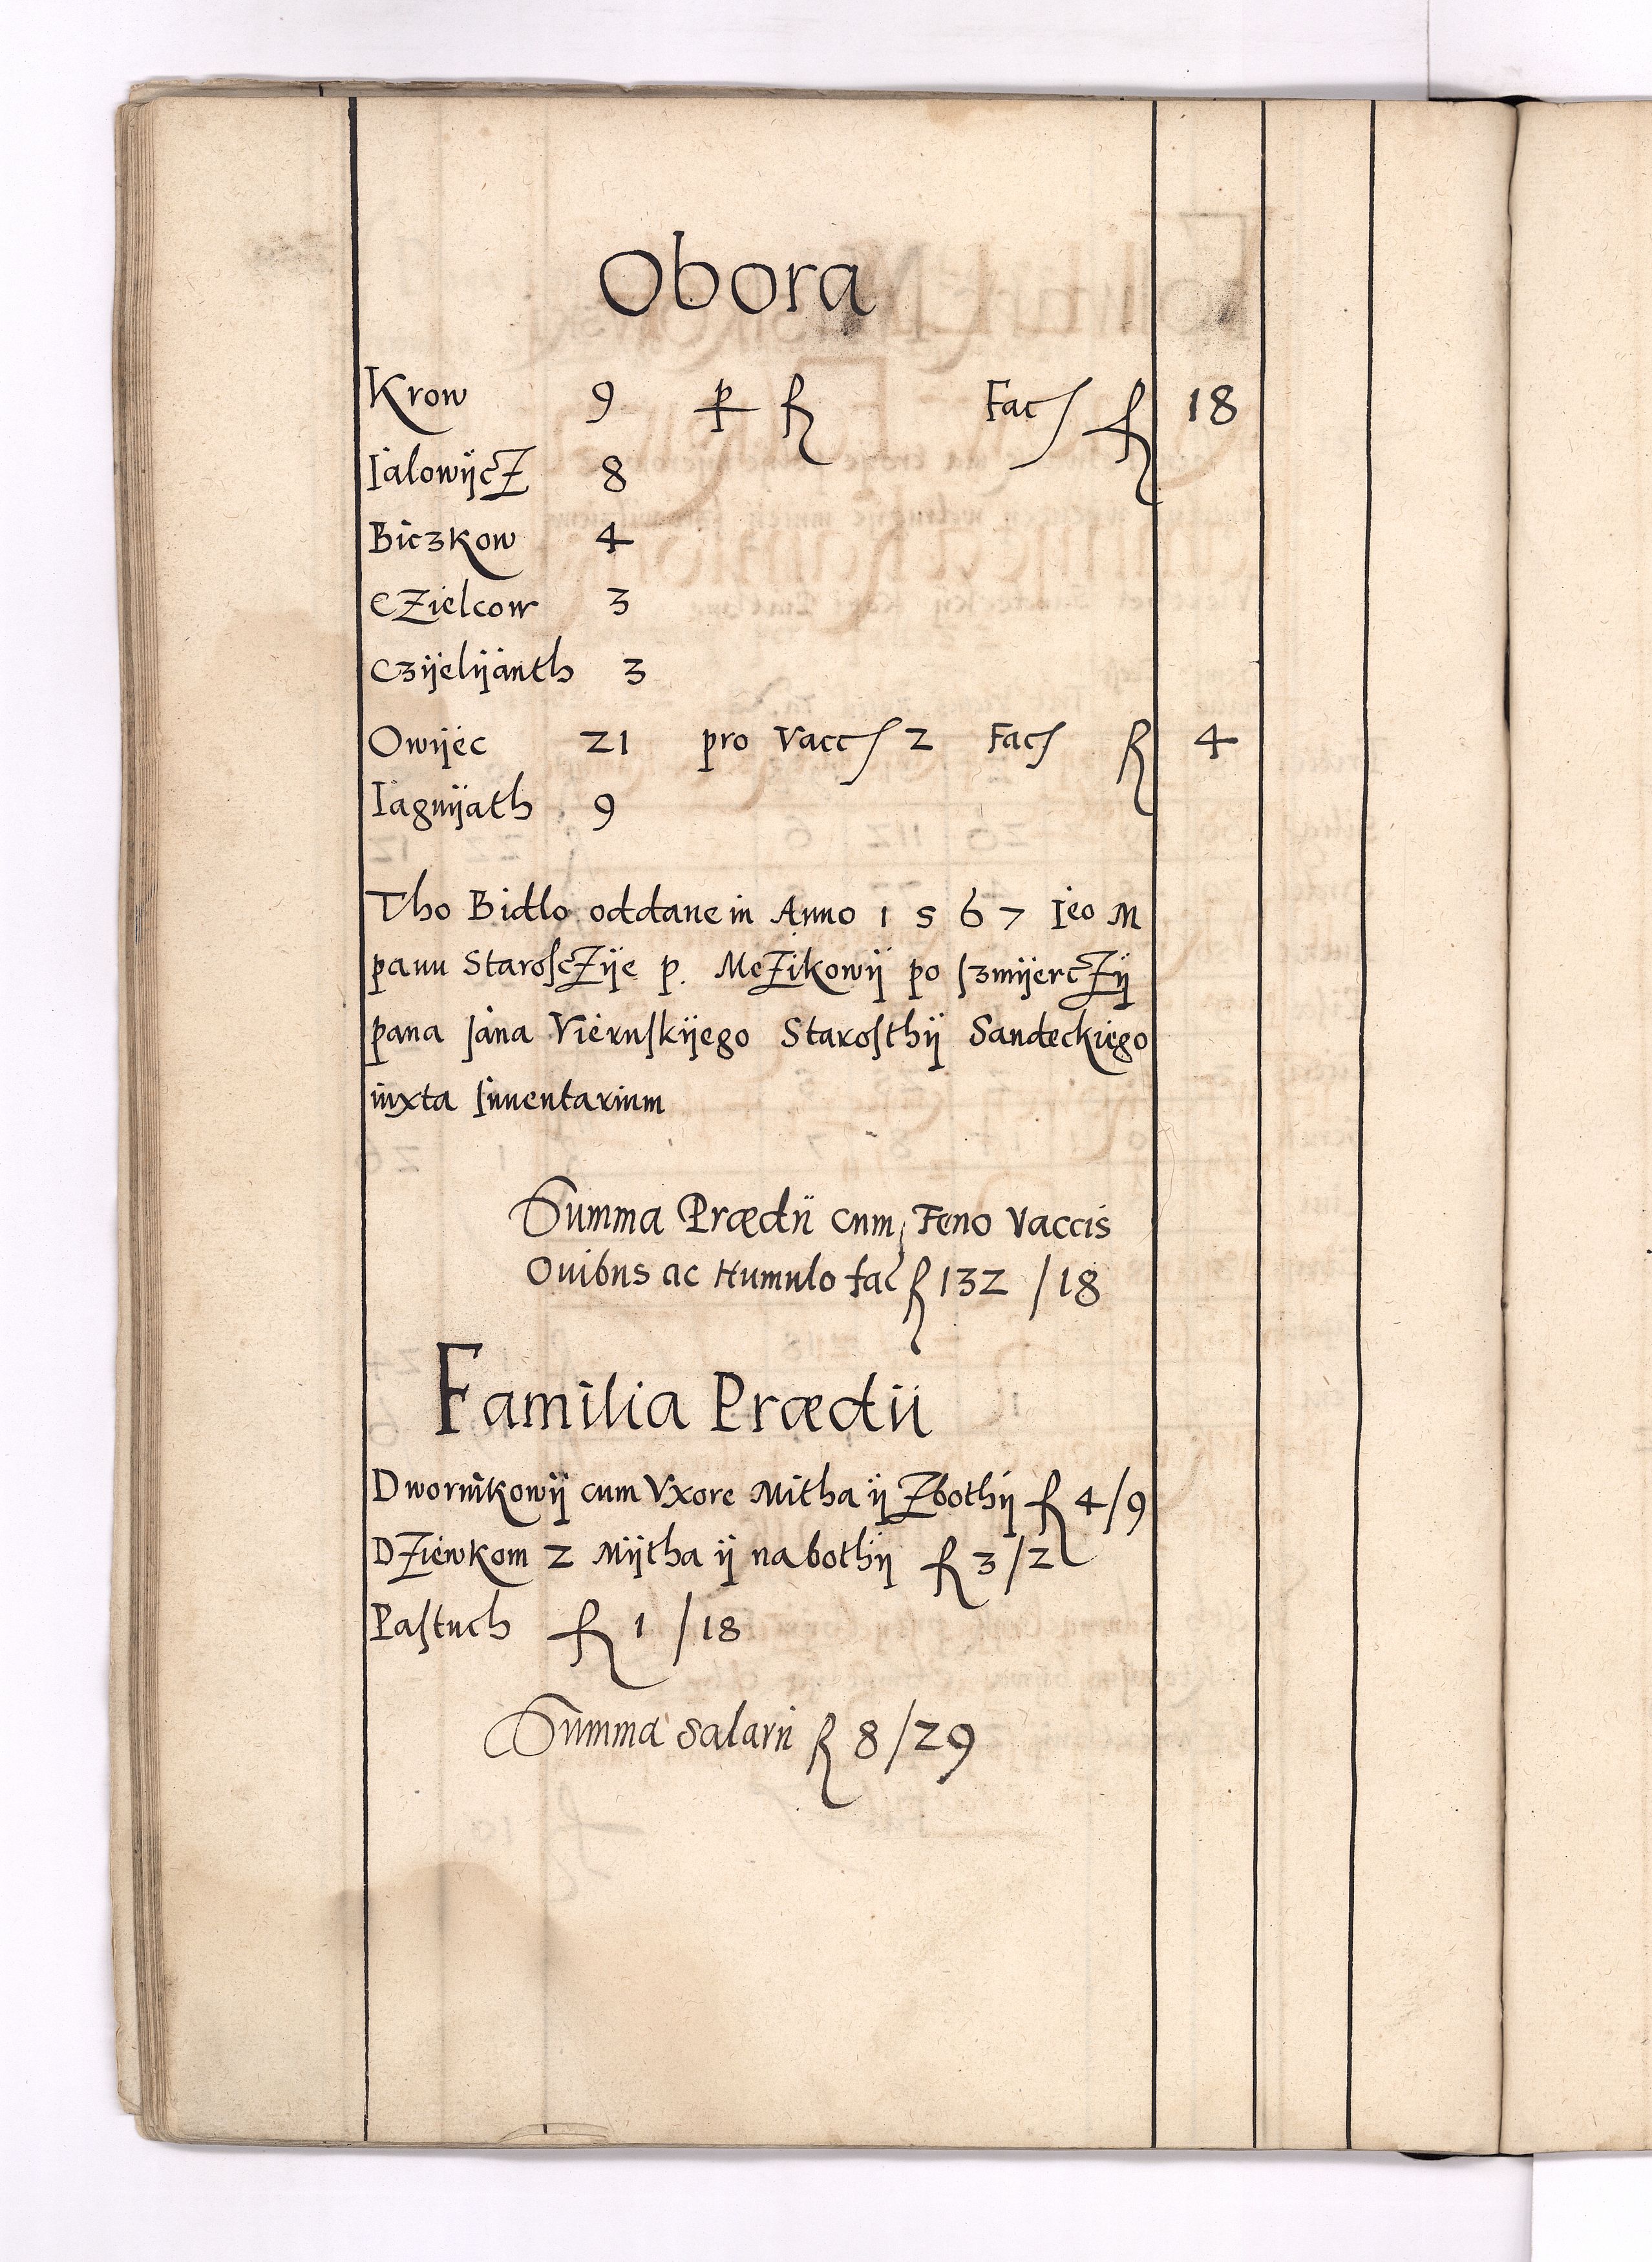 Obora
Krow 9 p fl Fac fl 18
IalowijcZ 8
Biczkow 4
cZielcow 3
Czijelijanth 3
Owijec 21 pro Vacc 2 Fac fl 4
Iagnijath 9
Tho Bidlo oddane in Anno 1567 Ieo M
panu StaroscZije p. MeZikowij po szmijercZij
pana Jana Viernskijego Starosthij Sandeckiego
iuxta Inuentarium
Summa Prædii cum Feno Vaccis
Ouibus ac Humulo fac fl 132 / 18
Familia Prædii
Dwornikowij cum Vxore Mitha ij Zbothij fl 4/9
DZiewkom 2 Mijtha ij na bothij fl 3/2
Pastuch fl 1 / 18
Summa salarii fl 8/29